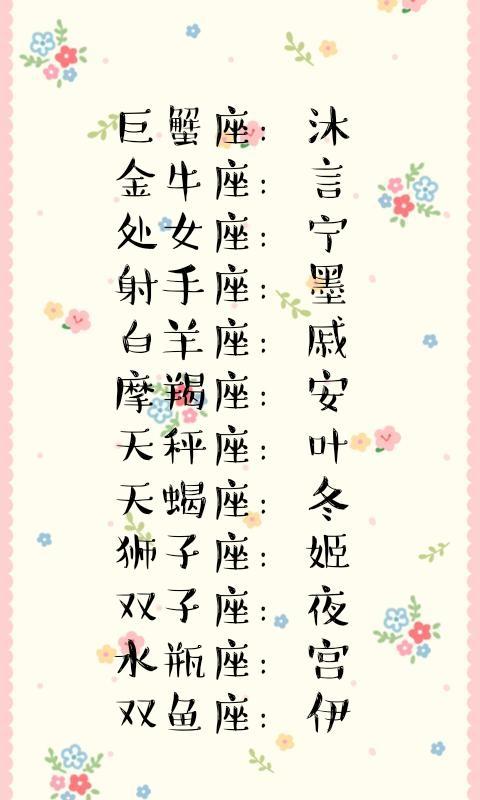 巨蟹座：沐
金牛座：言
处女座：宁
射手座：墨
白羊座：戚
摩羯座：安
天秤座：叶
天蝎座：冬
狮子座：姬
双子座：夜
水瓶座：宫
双鱼座：伊